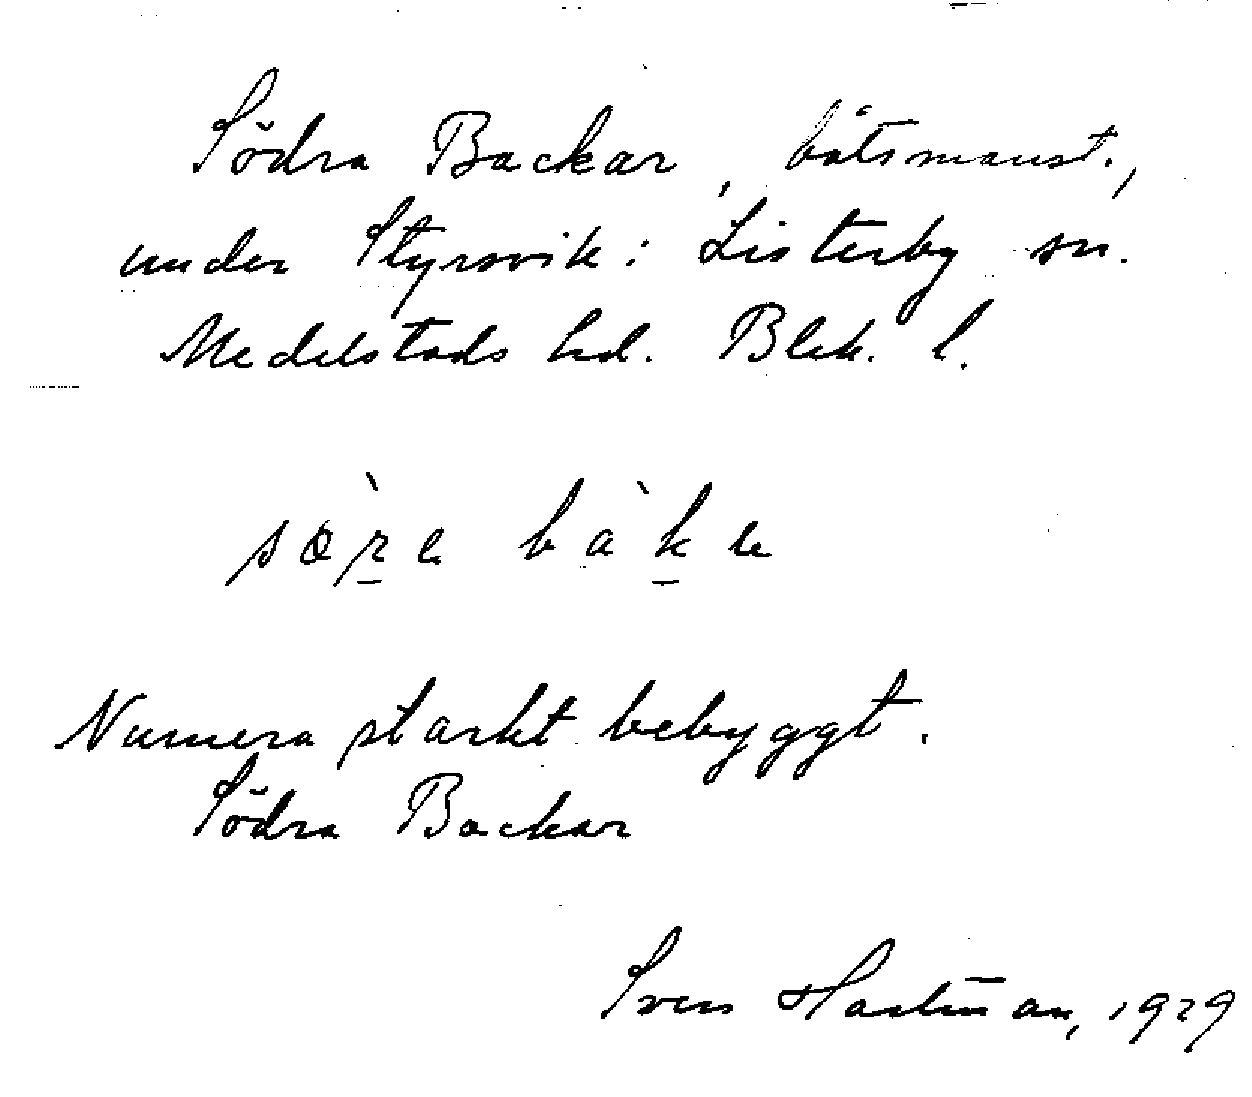 Södra Backar, båtsmanst.,
under Styrsvik: Listerby sn.
Medelstads hd. Blek. l.
sör̀e bàke
Numera starkt bebyggt.
Södra Backar
Sven Hartman, 1929